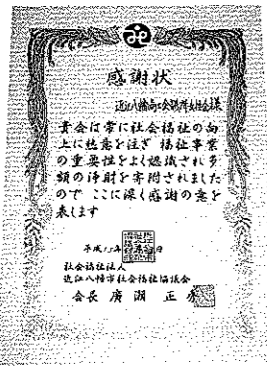 感謝状
近江八幡商工会議所女性会様
貴会は常に社会福祉の向
上に熱意を注ぎ 福祉事業
の重要性をよく認識され多
額の浄財を寄附されました
ので ここに深く感謝の意を
表します
平成15年
日
社会福祉法人
近江八幡市社会福祉協議会
会長 廣瀬 正